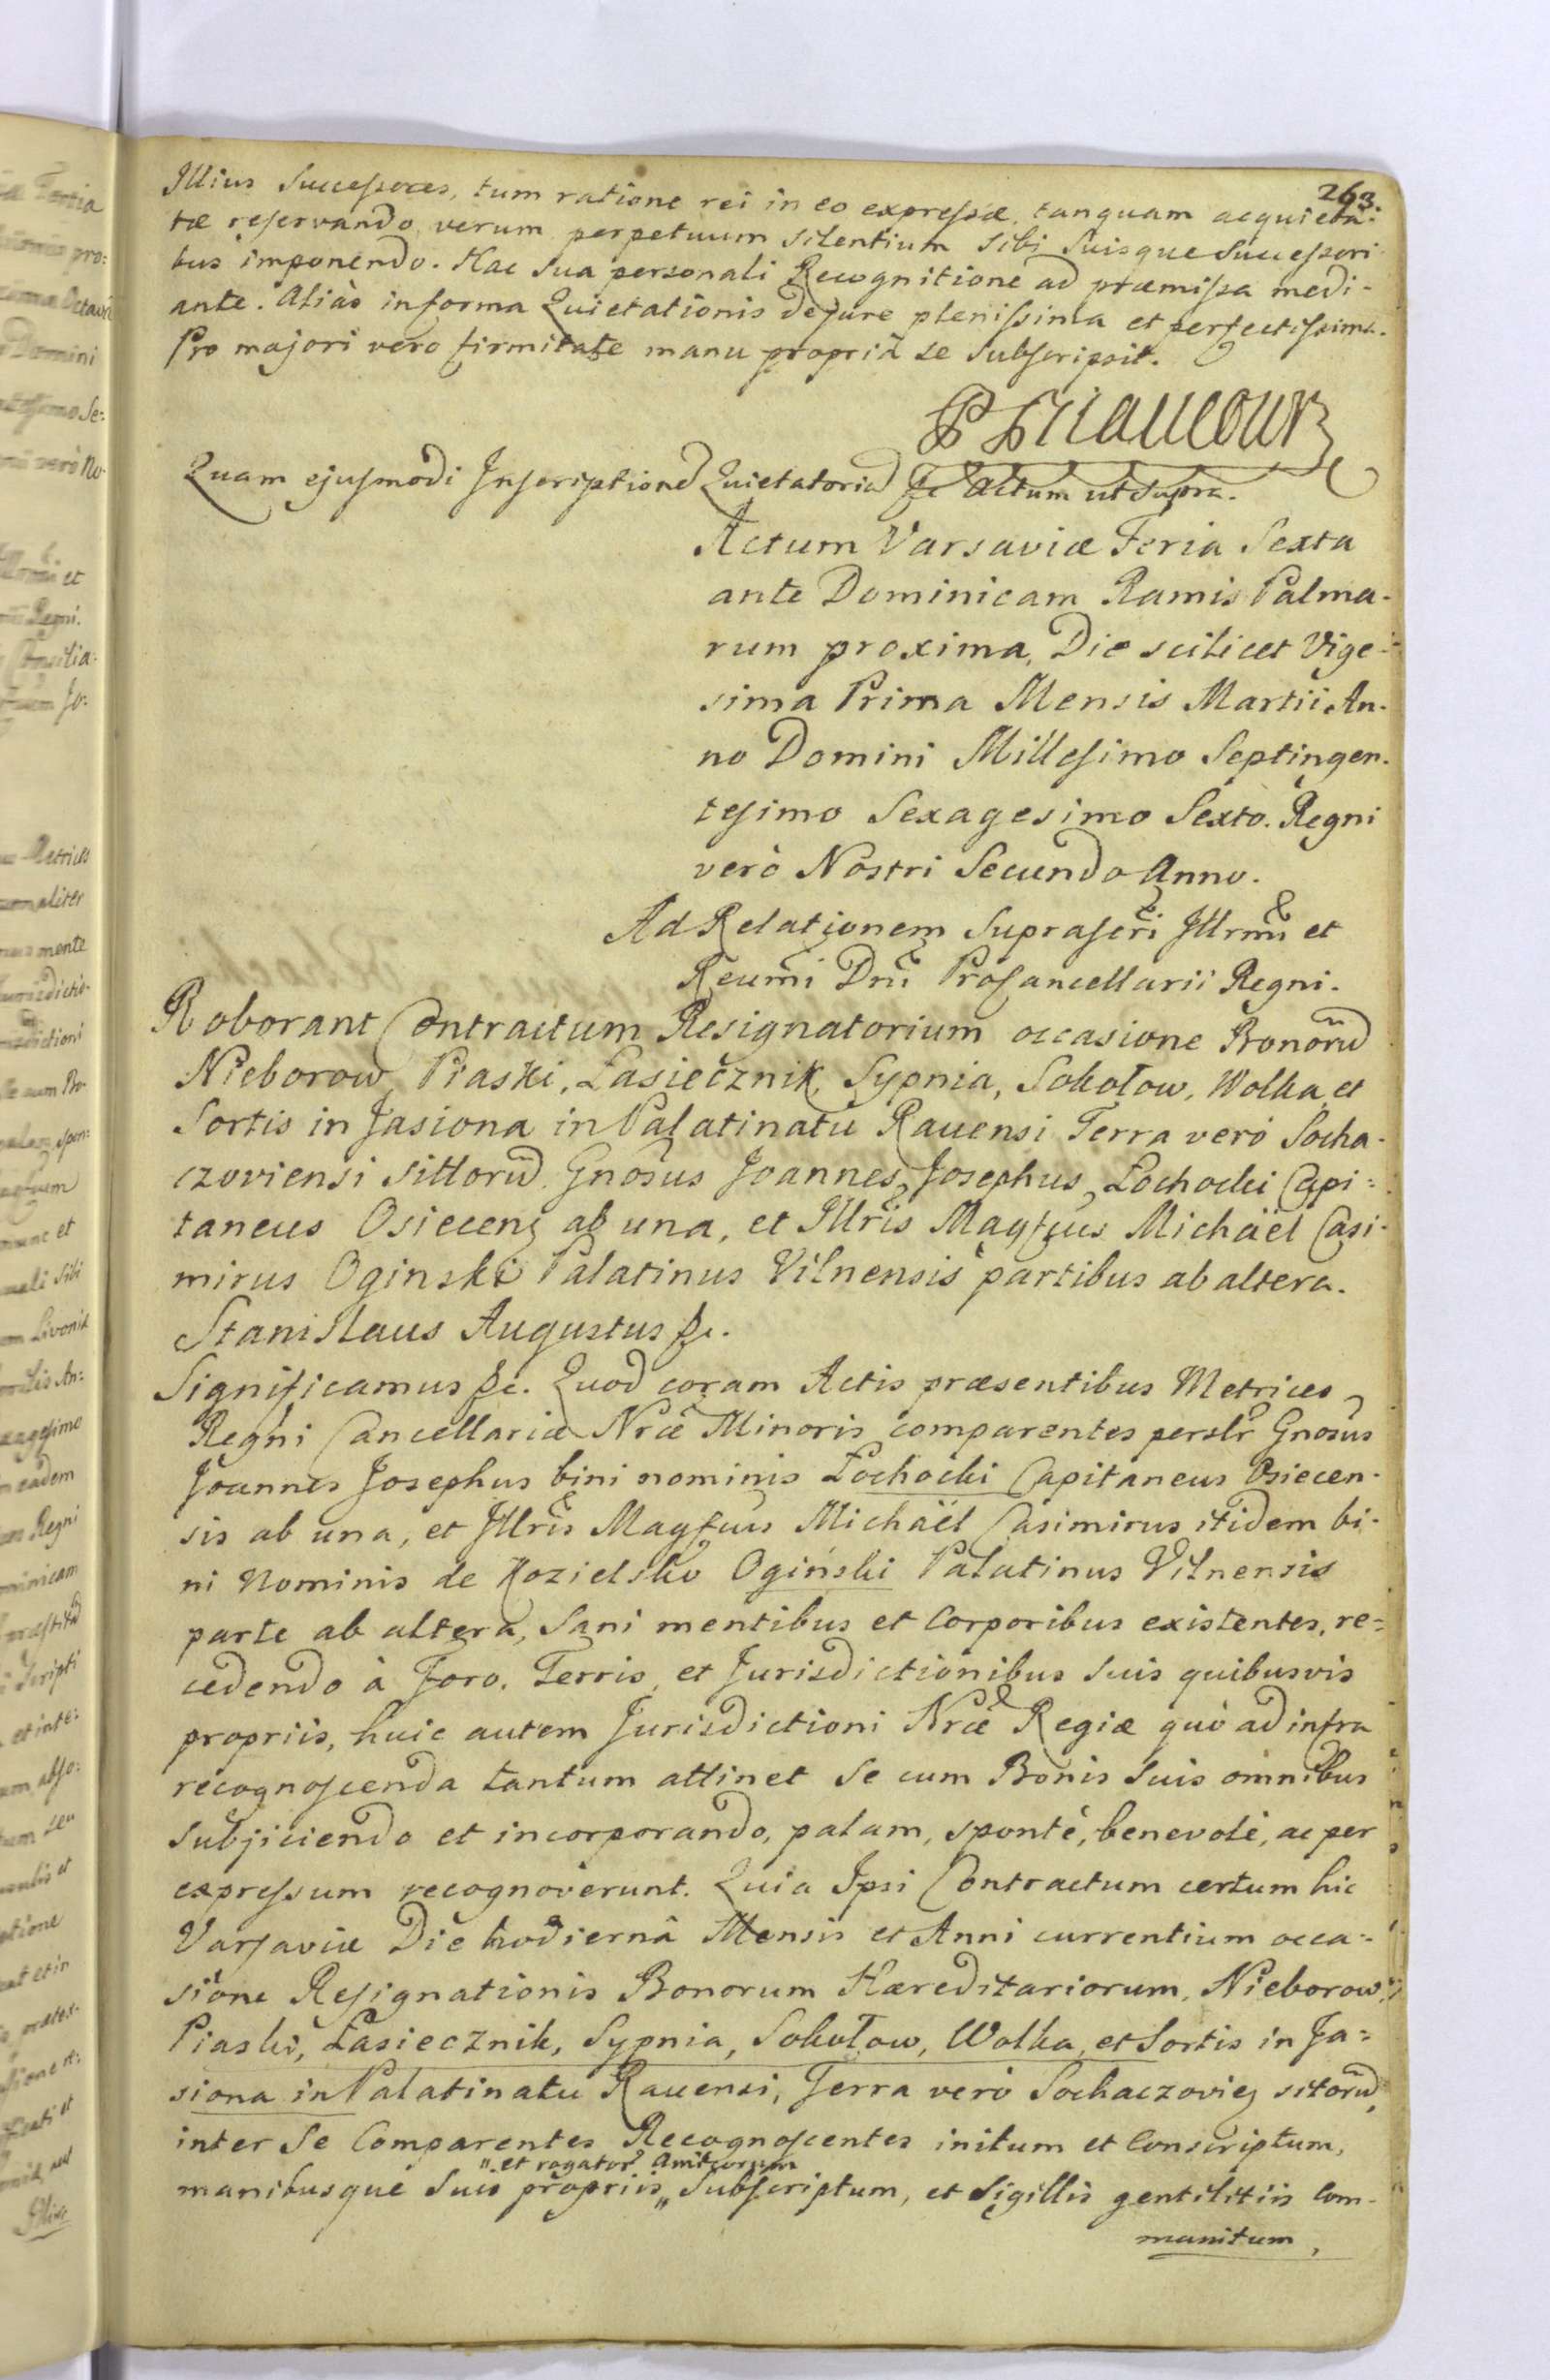 263.
Illius Successores, tum ratione rei in eo expressæ, tanquam acquieta-
tæ reservando verum perpetuum silentium Sibi Suisque Successori
bus imponendo. Hac Sua personali Recognitione ad præmissa medi-
ante. Aliàs in forma Quietationis de jure plenissima et perfectissima.
Pro majori vero firmitate manu propriâ se subscripsit.
Quam ejusmodi Inscriptionē Quietatoriā &c Actum ut supra.
Actum Varsaviæ Feria Sexta
ante Dominicam Ramis Palma-
rum proxima, Die scilicet Vige-
sima Prima Mensis Martii An-
no Domini Millesimo Septingen-
tesimo Sexagesimo Sexto. Regni
verò Nostri Secundo Anno.
Ad Relationem Suprascr̃i Illrmi et
Reumi Dni Procancellarii Regni.
Roborant Contractum Resignatorium occasione Bonorū
Nieborow, Piaski, Łasiecznik, Sypnia, Sokołow, Wolka, et
Sortis in Jasiona in Palatinatu Rauensi Terra verò Socha-
czoviensi sittorū Gnosus Joannes Josephus Łochocki Capi=
taneus Osiecens ab una, et Illris Magfcus Michäel Casi-
mirus Oginski Palatinus Vilnensis partibus ab altera.
Stanislaus Augustus &c.
Significamus &c. Quod coram Actis præsentibus Metrices
Regni Cancellariæ Nræ Minoris comparentes perslr Gnosus
Joannes Josephus bini nominis Łochocki Capitaneus Osiecen-
sis ab una, et Illris Magfcus Michäel Casimirus itidem bi-
ni Nominis de Kozielsko Ogiński Palatinus Vilnensis
parte ab altera, Sani mentibus et Corporibus existentes, re=
cedendo à Foro, Terris, et Jurisdictionibus suis quibusvis
propriis, huic autem Jurisdictioni Nræ Regiæ quò ad infra
recognoscenda tantum attinet Se cum Bonis Suis omnibus
subjiciendo et incorporando, palam, spontè, benevolè, ac per
expressum recognoverunt. Quia Ipsi Contractum certum hic
Varsaviæ Die hodiernâ Mensis et Anni currentium occa=
sione Resignationis Bonorum Hæreditariorum, Nieborow,
Piaski, Łasiecznik, Sypnia, Sokołow, Wolka, et Sortis in Ja=
siona in Palatinatu Rauensi, Terra verò Sochaczovies sitorū,
inter Se Comparentes Recognoscentes initum et Conscriptum,
„et rogator Amicorum
manibusque Suis propriis „ Subscriptum, et Sigillis gentilitiis Com-
munitum,